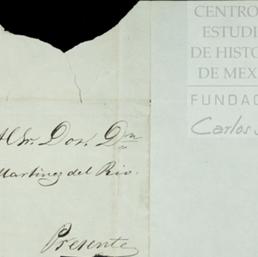 CENTRO
ESTUDI
DE HISTO
DE MEX
FUNDAC
Carlos S
Al Sr. Dor. Dn
Martinez del Rio.
Presente